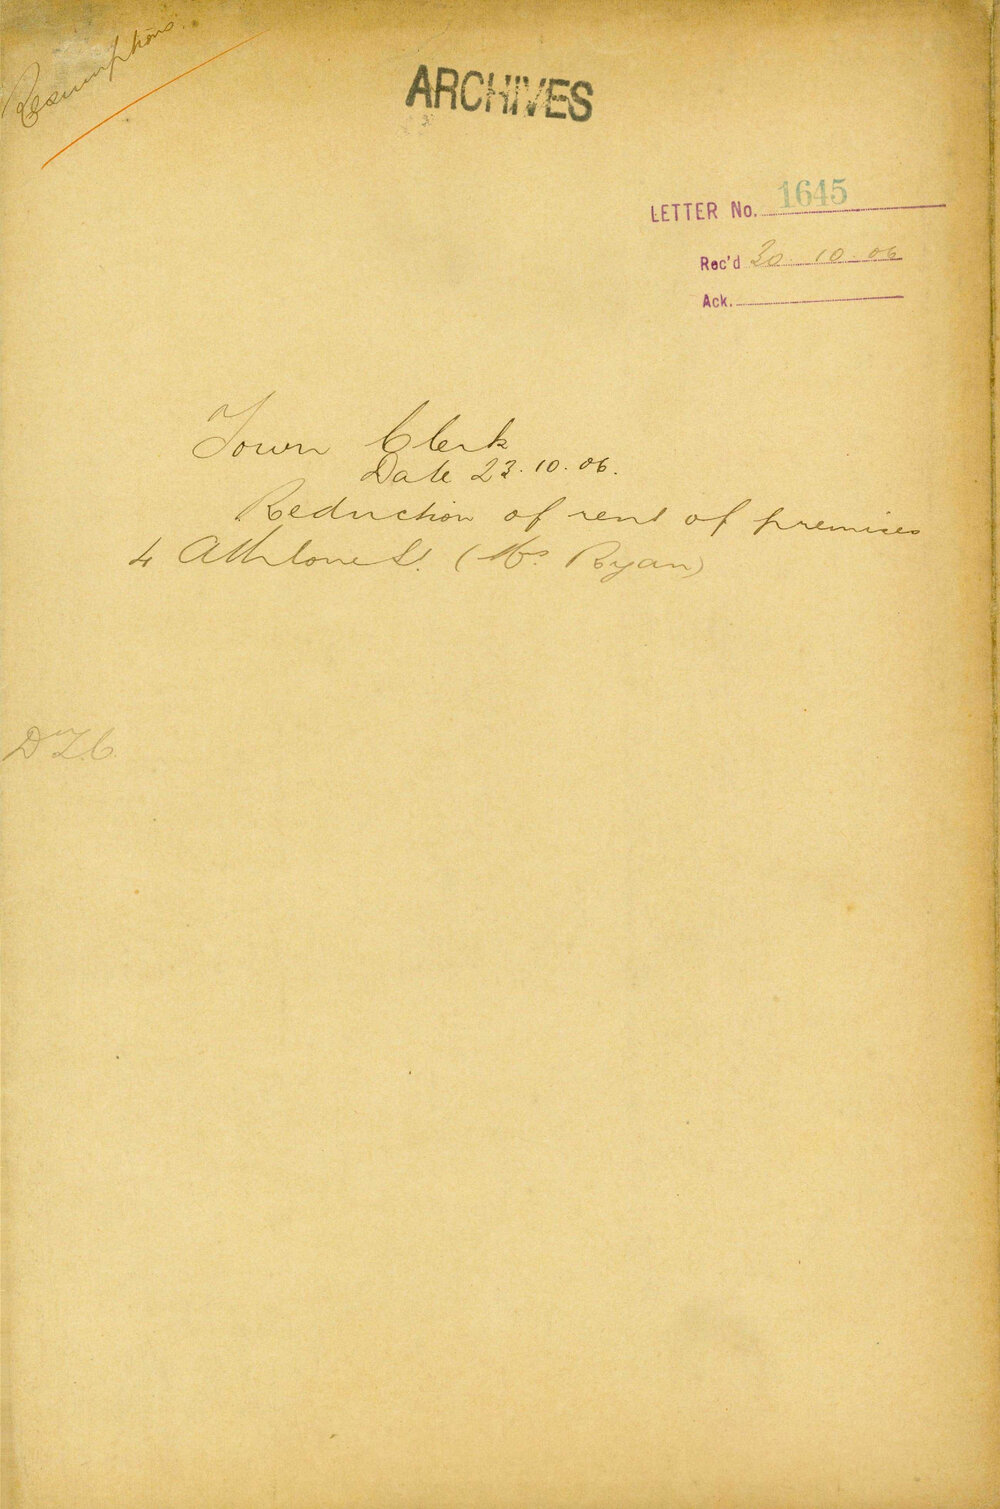 Resumptions.
ARCHIVES
LETTER No. 1645
Rec'd 30. 10. 06
Ack.
Town Clerk
Date 23. 10. 06.
Reduction of rent of premises
4 Athlone St. (Mrs. Ryan)